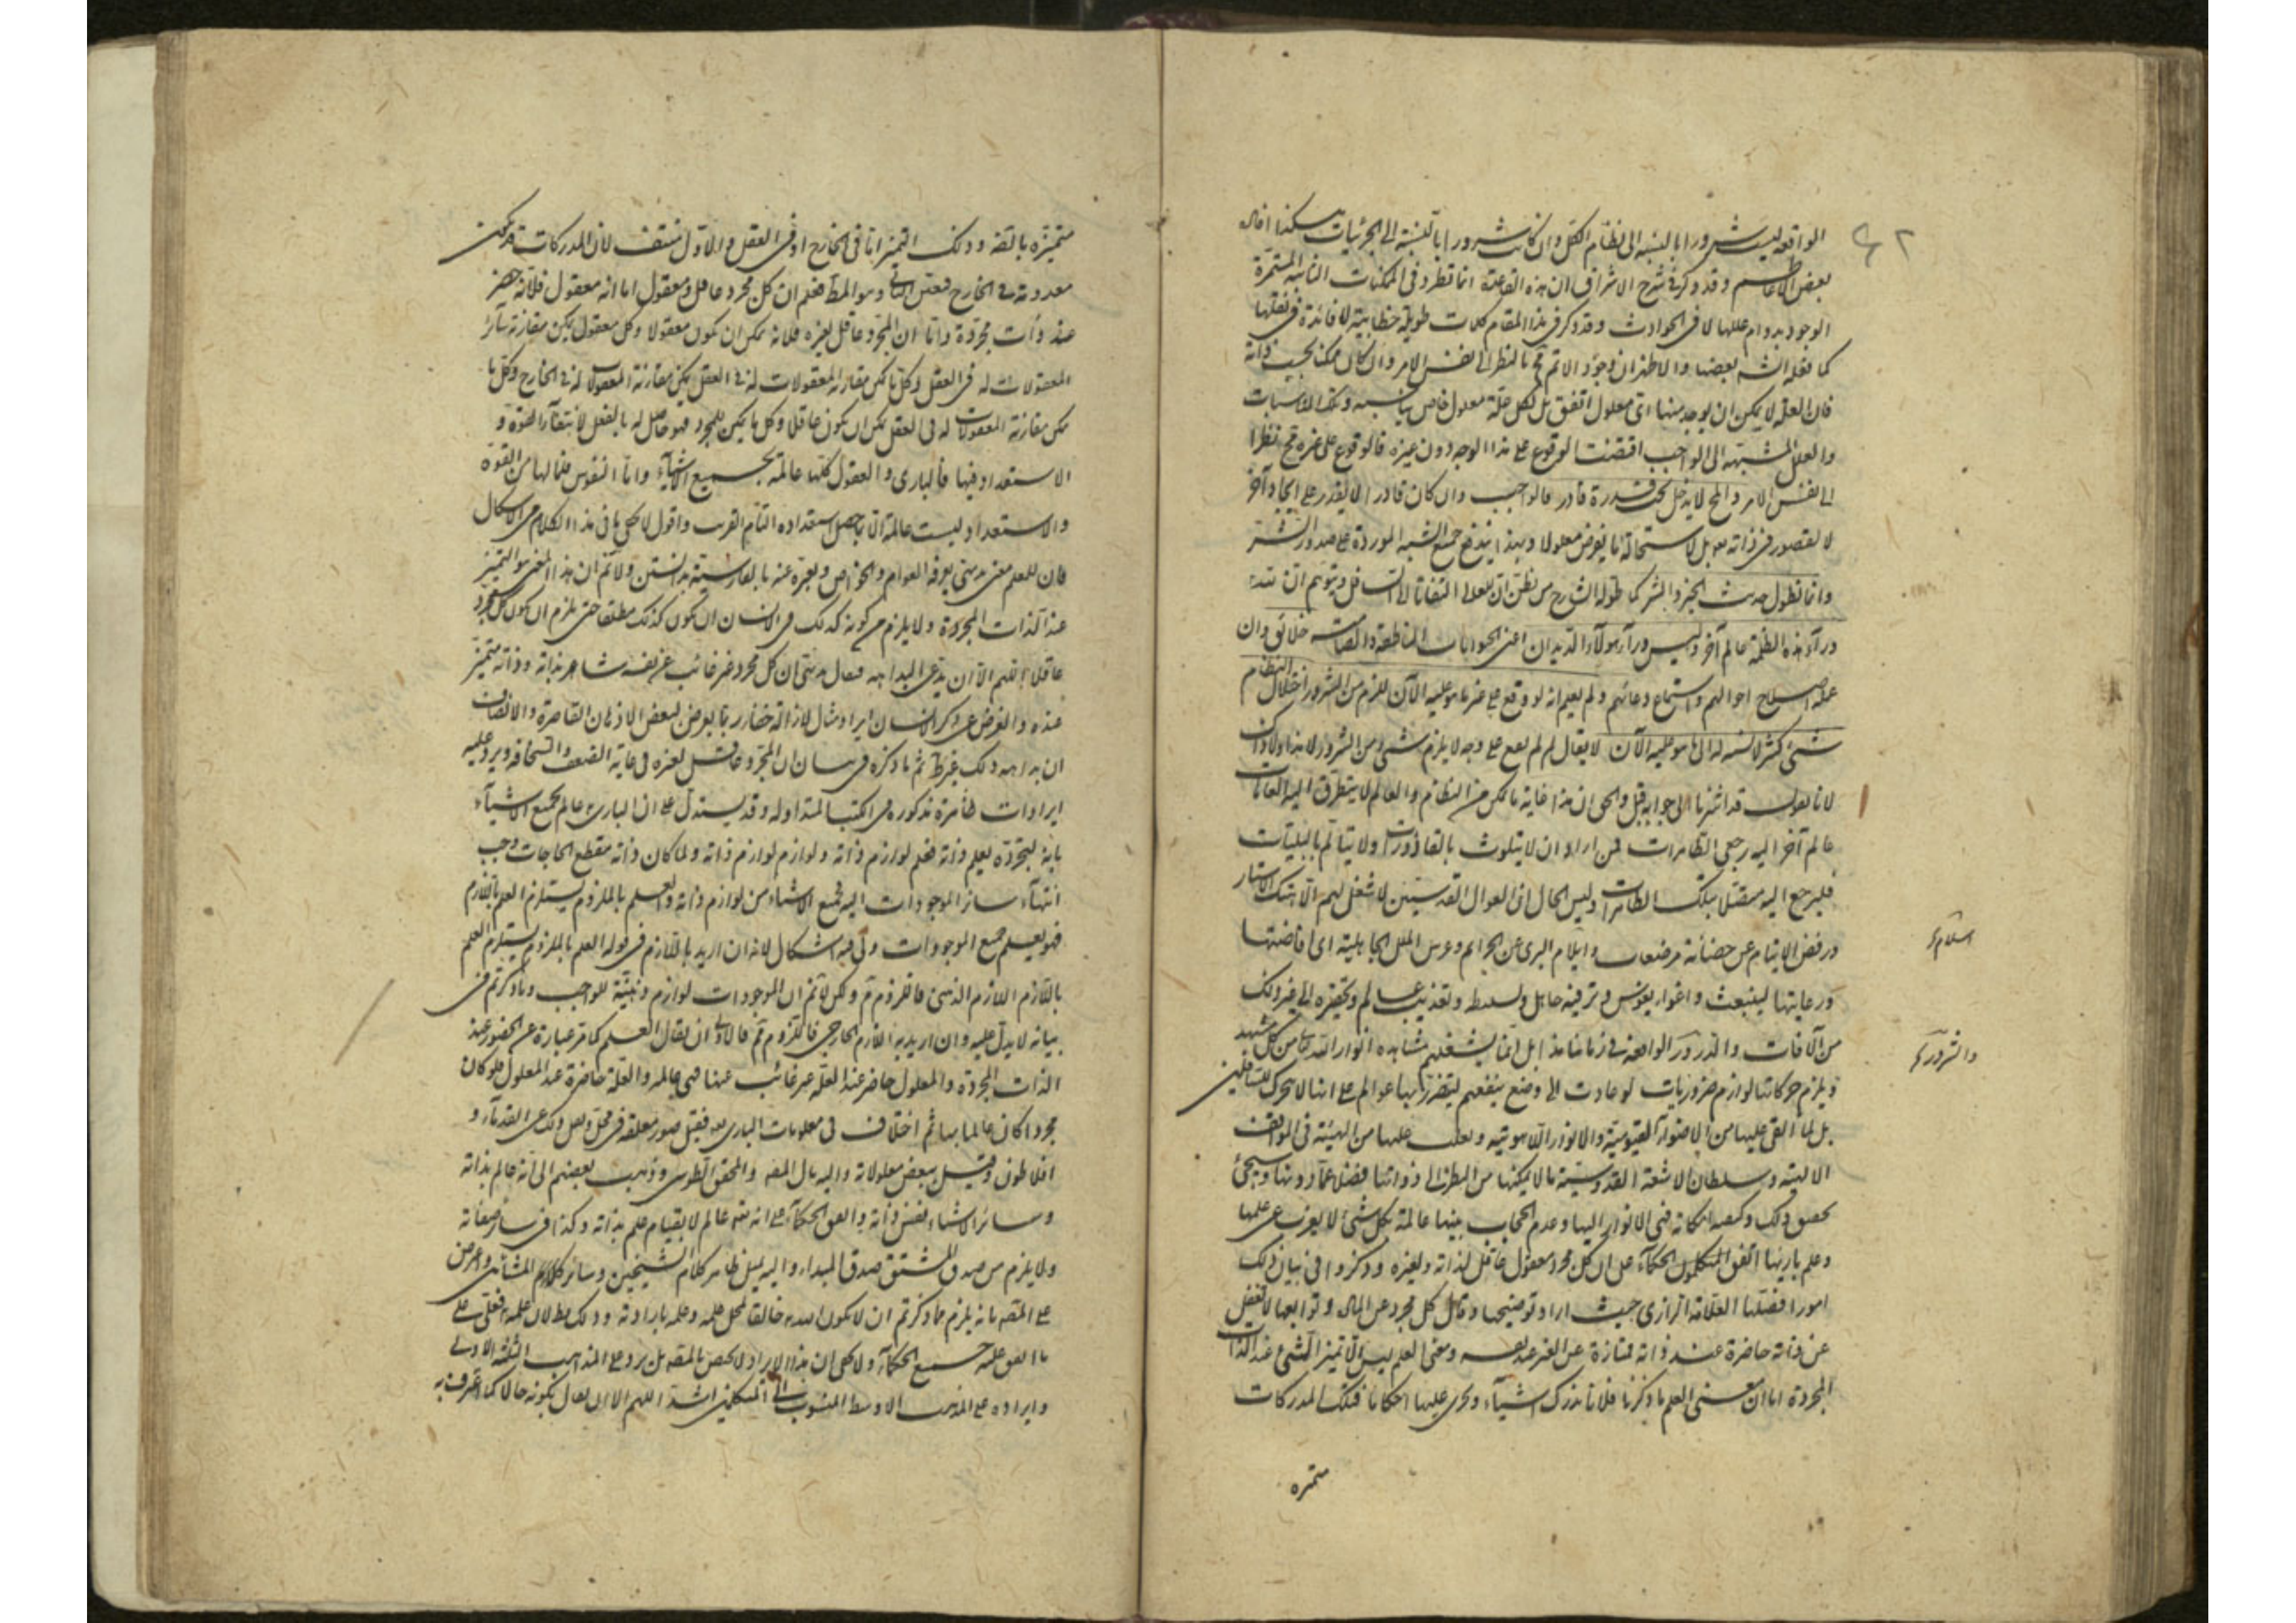 الواقعة ليست شرورا بالنسبة الى نظام الكل وان كانت شرورا بالنسبة الى الجزئيات هكذا افاد
بعض الاعاظم وقد ذكر فى شرح الاشراق ان هذه القاعدة انما تطرد فى الممكنات الثابتة المستمرة
الوجود بدوام عللها لا فى الحوادث وقد ذكر فى هذا المقام كلمات طويلة خطابية لا فائدة فى نقلها
كما فعله الشه بعضها والاظهر ان وجود الاتم مح بالنظر الى نفس الامر وان كان ممكنا بحسب ذاته
فان العلة لا يمكن ان يوجد منها اى معلول اتفق بل لكل علة معلول خاص يناسبه وتلك الاسباب
والعلل المنتهية الى الواجب اقتضت الوقوع على هذا الوجه دون غيره فالوقوع على غيره مح نظرا
الى نفس الامر والمح لا يدخل تحت قدرة قادر فالواجب وان كان قادرا لا يقدر على ايجاد آخر
لا لقصور فى ذاته بل لاستحالة ما يفرض معلولا وبهذا يندفع جميع الشبه الموردة على صدور الشر
وانما تطول حديث الخير والشر كما طوله الشارح من يظن ان للعالى التفاتا الى السافل ويتوهم ان ليس
وراء هذه الظلمة عالم آخر وليس وراء هولاء الديدان اعنى الحيوانات الناطقة والصامتة خلائق وان
عمله اصلاح احوالهم واستماع دعائهم ولم يعلم انه لو وقع على غير ما هو عليه الآن للزم من الشرور واختلال النظام
شئ كثير لا نسبة له الى ما هو عليه الآن لا يقال لم لم يقع على وجه لا يلزم شئ من الشرور لا هذا ولا ذاك
لانا نقول قد اشرنا الى جوابه قبل والحق ان هذا غاية ما يمكن من النظام والعالم لا يتطرق اليه العاهات
عالم آخر اليه رجعى الطاهرات فمن اراد ان لا يتلوث بالقاذورات ولا يتألم بالبليات
فليرجع اليه متصلا بتلك الطاهرات وليس الحال ان العوال القدسيين لا شغل لهم الا هتك الاستار
ورفض الايتام عن حضانة مرضعات وايلام البرى عن الجرائم وغرس الملل الجاهلية اى افاضتها
ورعايتها لينبعث واغواء نفوس وترفيه جاهل وتسليطه وتعذيب عالم وتحقيره الى غير ذلك
من الآفات والشرور الواقعة فى زماننا هذا بل انما يشغلهم مشاهدة انوار الله تعالى من كل مشهد
ويلزم حركاتها لوازم ضروريات لو عادت الى وضع ينفعهم ليتضرر بها عوالم على انها لا تتحرك للسافلين
بل لما القى عليها من الاضواء القيومية والانوار اللاهوتية وتغلب عليها من الهيئة فى المواقف
الالهية وسلطان الاشعة القدوسية ما لا يمكنها من النظر الى ذواتها فضلا عما دونها وسيجئ
تحقيق ذلك وكيفية امكانه فهى الانوار اليها وعدم الحجاب بينها عالمة بكل شئ لا يعزب عن علمها
وعلم باريها اتفق المتكلمون والحكماء على ان كل مجرد معقول عاقل لذاته ولغيره وذكروا فى بيان ذلك
امورا فصلها العلامة الرازى حيث اراد توضيحها وقال كل مجرد عن المادة وتوابعها لا يغفل
عن ذاته حاضرة عند ذاته ممتازة عن الغير عند نفسه ومعنى العلم ليس الا تميز الشئ عند الذات
المجردة اما ان معنى العلم ما ذكرنا فلانا ندرك اشياء ونجرى عليها احكاما فتلك المدركات
متميزه
والشرور
متميزة بالضرورة وذلك التميز اما فى الخارج او فى العقل والاول منتف لان المدركات قد تكون
معدومة فى الخارج فتعين الثانى وهو المط فعلم ان كل مجرد عاقل ومعقول اما انه معقول فلانه حضر
عند ذات مجردة واما ان المجرد عاقل لغيره فلانه يمكن ان يكون معقولا وكل معقول يمكن مقارنة سائر
المعقولات له فى العقل وكل ما يمكن مقارنة المعقولات له فى العقل يمكن مقارنة المعقولات له فى الخارج وكل ما
يمكن مقارنة المعقولات له فى العقل يمكن ان يكون عاقلا وكل ما يمكن للمجرد فهو حاصل له بالفعل لانتفاء القوة و
الاستعداد فيها فالبارى والعقول كلها عالمة بجميع الاشياء واما النفوس فلما لها من القوة
والاستعداد ليست عالمة الا بما حصل استعداده التام القريب واقول لا يخفى ما فى هذا الكلام من الاشكال
فان للعلم معنى بديهى يعرفه العوام والخواص ويعبره عنه بالفارسية بدانستن ولا نم ان هذا المعنى هو التميز
عند الذات المجردة ولا يلزم من كونه كذلك فى الانسان ان يكون كذلك مطلقا حتى يلزم ان يكون كل مجرد
عاقلا اللهم الا ان يدعى البداهة فيقال بديهى ان كل مجرد غير غائب عن نفسه شاهد بذاته وذاته متميز
عنده والغرض من ذكر الانسان ايراد مثال لازالة خفاء ربما يعرض لبعض الاذهان القاصرة والانصاف
ان بداهة ذلك غير ظ ثم ما ذكره فى بيان ان المجرد عاقل لغيره فى غاية الضعف والسخافة ويرد عليه
ايرادات ظاهرة مذكورة فى الكتب المتداولة وقد يستدل على ان البارى عالم بجميع الاشياء
بانه لتجرده يعلم ذاته فعلم لوازم ذاته ولوازم لوازم ذاته ولما كان ذاته مقطع الحاجات وجب
انتهاء سائر الموجودات اليه فجميع الاشياء من لوازم ذاته والعلم بالملزوم يستلزم العلم باللازم
فهو يعلم جميع الموجودات ولى فيه اشكال لانه ان اريد باللازم فى قوله العلم بالملزوم يستلزم العلم
باللازم اللازم الذهنى فاللزوم م ولكن لا نم ان الموجودات لوازم ذهنية للواجب وما ذكرتم فى
بيانه لا يدل عليه وان اريد به اللازم الخارجى فاللزوم م فالاولى ان يقال العلم كما مر عبارة عن الحضور عند
الذات المجردة والمعلول حاضر عند العلة غير غائب عنها فهى عالمة والعلة حاضرة عند المعلول فلو كان
مجردا كان عالما بها ثم اختلاف فى معلومات البارى فقيل صور معلقة فى محل ونقل ذلك عن القدماء و
افلاطون وقيل ببعض معلولاته واليه مال المصه والمحقق الطوسى وذهب بعضهم الى انه عالم بذاته
وسائر الاشياء نفس ذاته واتفق الحكماء على انه تعالى عالم لا بقيام علم بذاته وكذا فى سائر صفاته
ولا يلزم من صدق المشتق صدق المبداء واليه يميل ظاهر كلام الشيخين وسائر كلام المشائين واعترض
على المصه بانه يلزم مما ذكرتم ان لا يكون الله خالقا لمحل علمه وعلمه بارادته وذلك بطلان علمه فعلى على
ما اتفق عليه جميع الحكماء ولا يخفى ان هذا الايراد لا يختص بالمصه بل يرد على المذاهب الثلثة الاولى
وايراده على المذهب الاوسط المنسوب الى المتكلمين اشد اللهم الا ان يقال بكونه حالا كما اعترف به